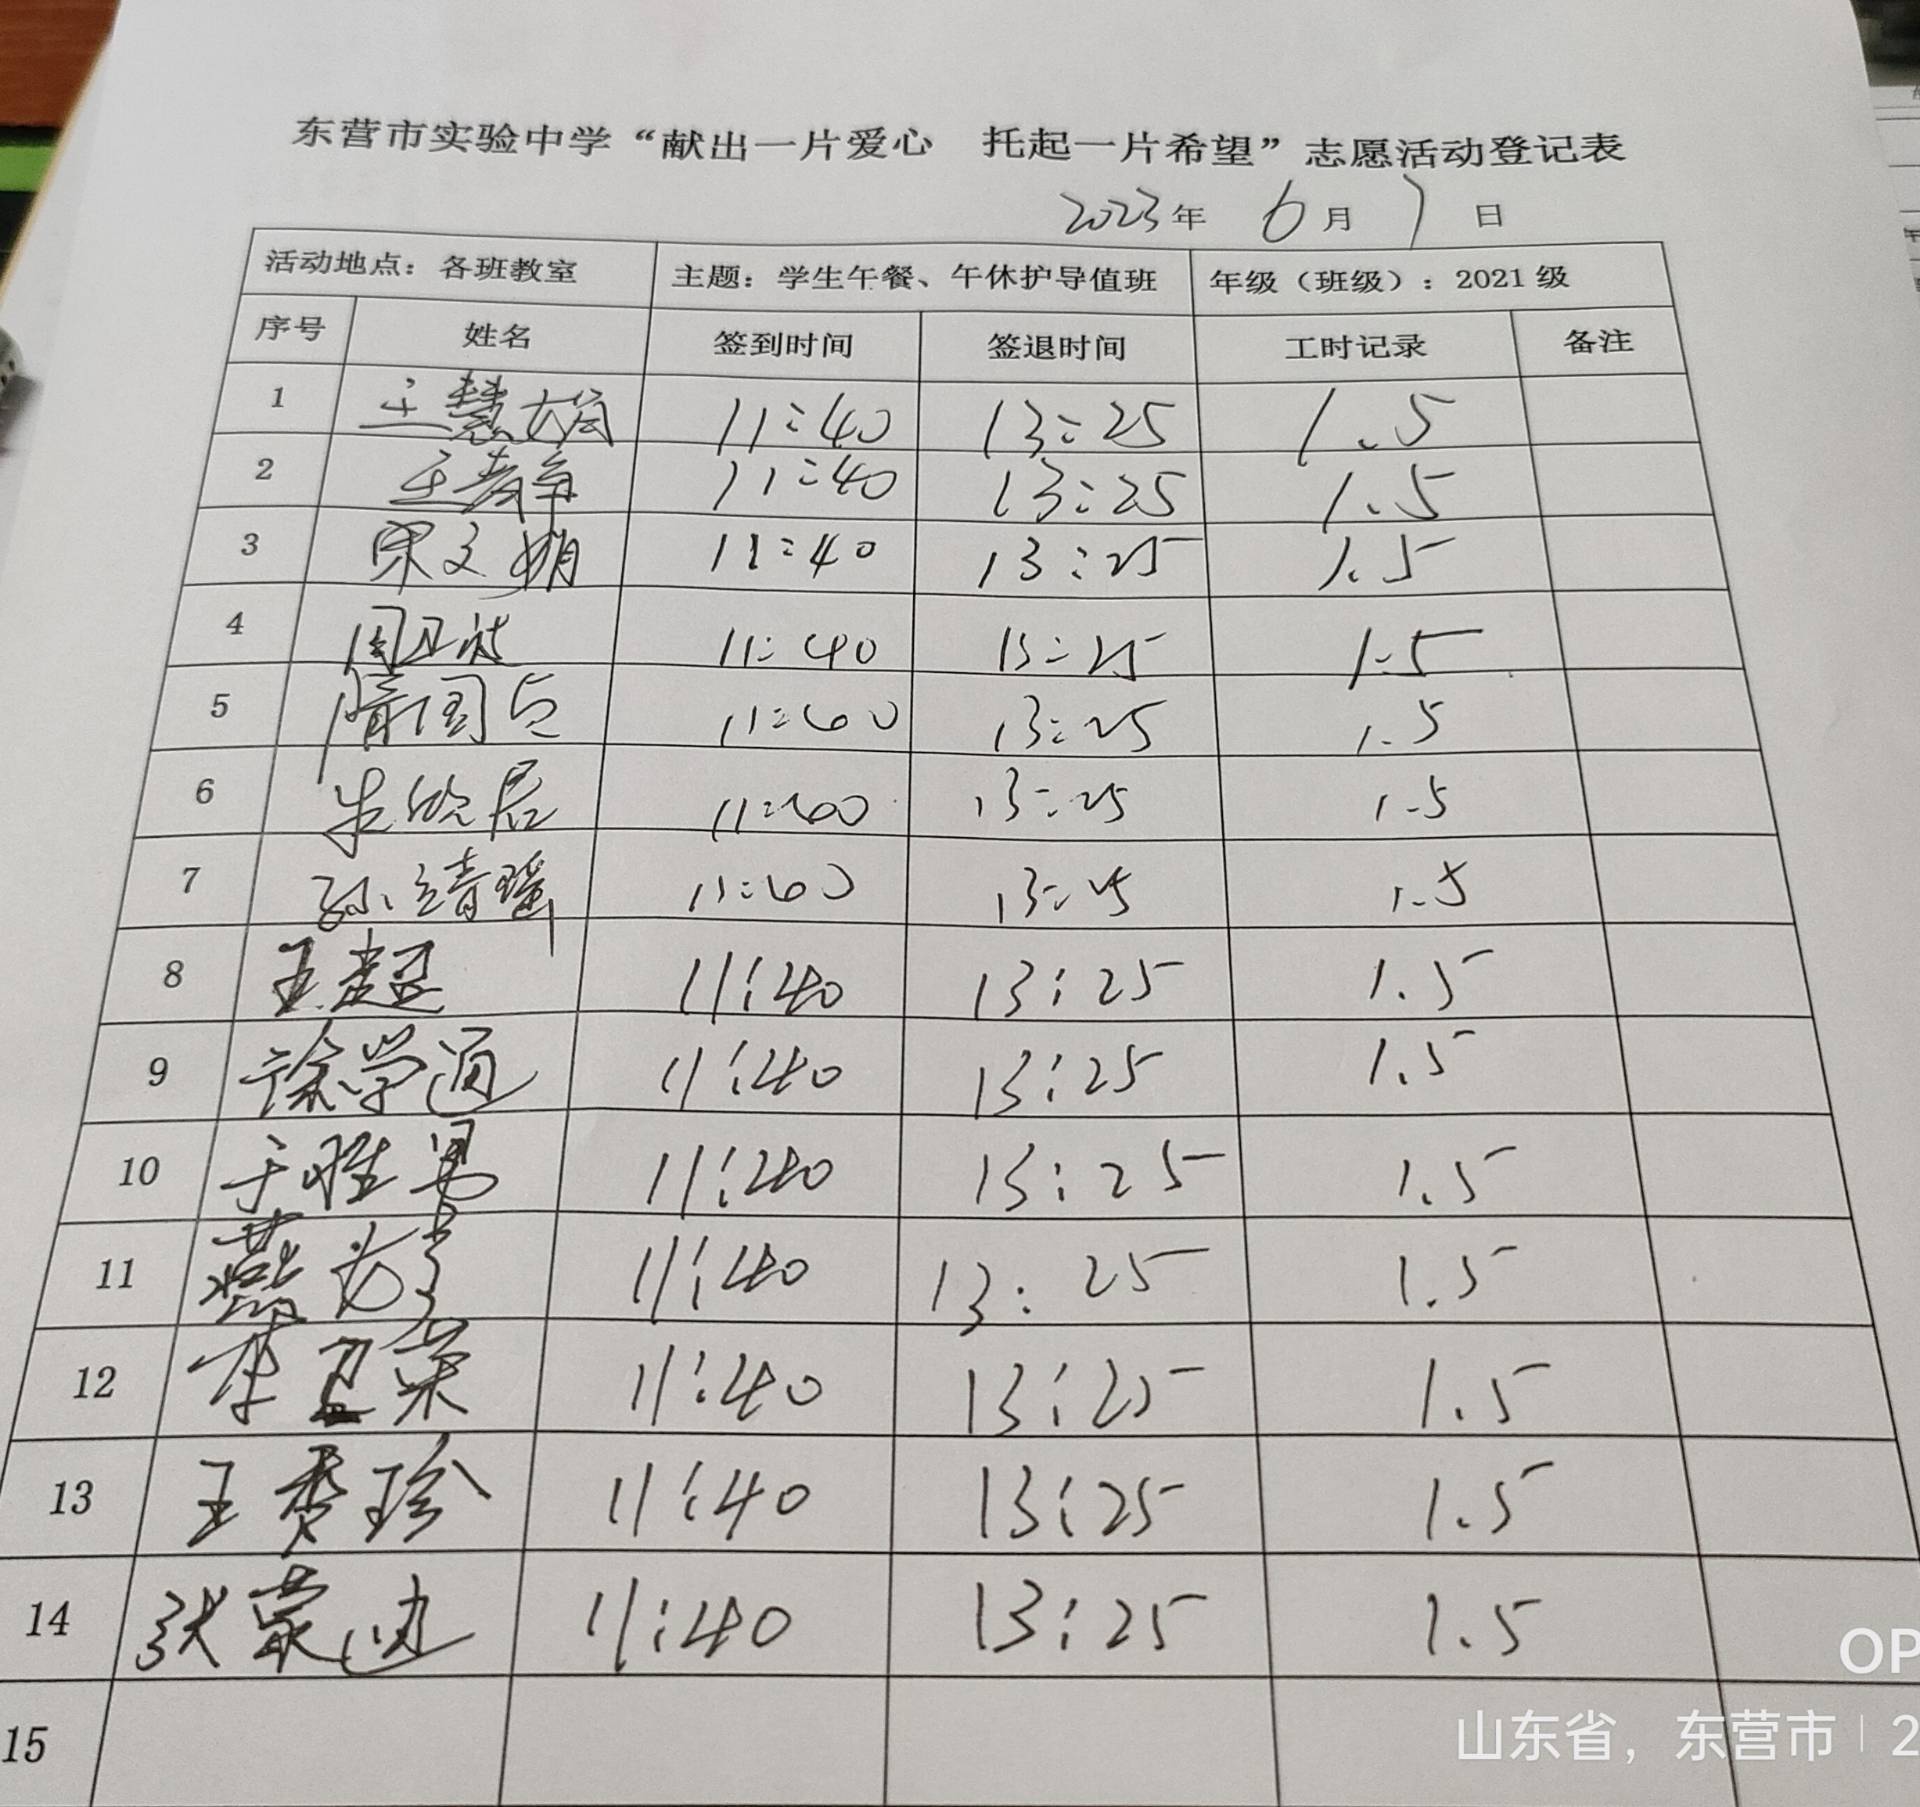 东营市实验中学“献出一片爱心 托起一片希望”志愿活动登记表
2023年 6月 7日
活动地点：各班教室 主题：学生午餐、午休护导值班 年级（班级）：2021级
序号 姓名 签到时间 签退时间 工时记录 备注
1 王慧娟 11:40 13:25 1.5
2 王静 11:40 13:25 1.5
3 宋文娟 11:40 13:25 1.5
4 周卫 11:40 13:25 1.5
5 隋国 11:40 13:25 1.5
6 朱欣 11:40 13:25 1.5
7 孙靖瑶 11:40 13:25 1.5
8 王超 11:40 13:25 1.5
9 徐学通 11:40 13:25 1.5
10 于胜男 11:40 13:25 1.5
11 燕 11:40 13:25 1.5
12 李卫荣 11:40 13:25 1.5
13 王秀珍 11:40 13:25 1.5
14 张蒙迪 11:40 13:25 1.5
15
OP
山东省，东营市 | 2